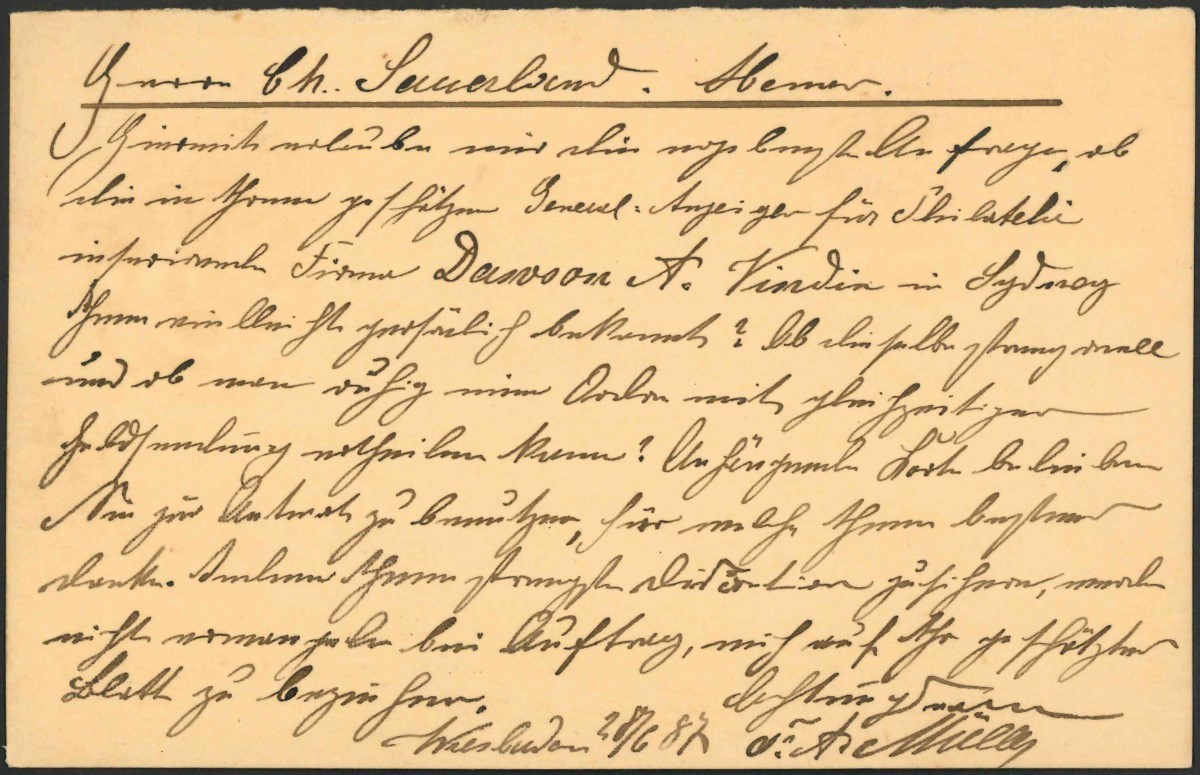 Herrn Ch. Sauerland. Hemer.
Hiermit erlaube mir die ergebenste Anfrage, ob
die in Ihrem geschätzten General-Anzeiger für Philatelie
inserirende Firma Dawson A. Vindin in Sydney
Ihnen vielleicht persönlich bekannt? Ob dieselbe streng reell
und ob man ruhig eine Ordre mit gleichzeitiger
Geldsendung ertheilen kann? Anhängende Karte belieben
Sie zur Antwort zu benutzen, für welche Ihnen bestens
danke. Indem Ihnen strengste Discretion zusichere, werde
nicht ermangeln bei Auftrag, mich auf Ihr geschätztes
Blatt zu beziehen.
Achtungsvoll
Wiesbaden 28/6 87 A. Müller